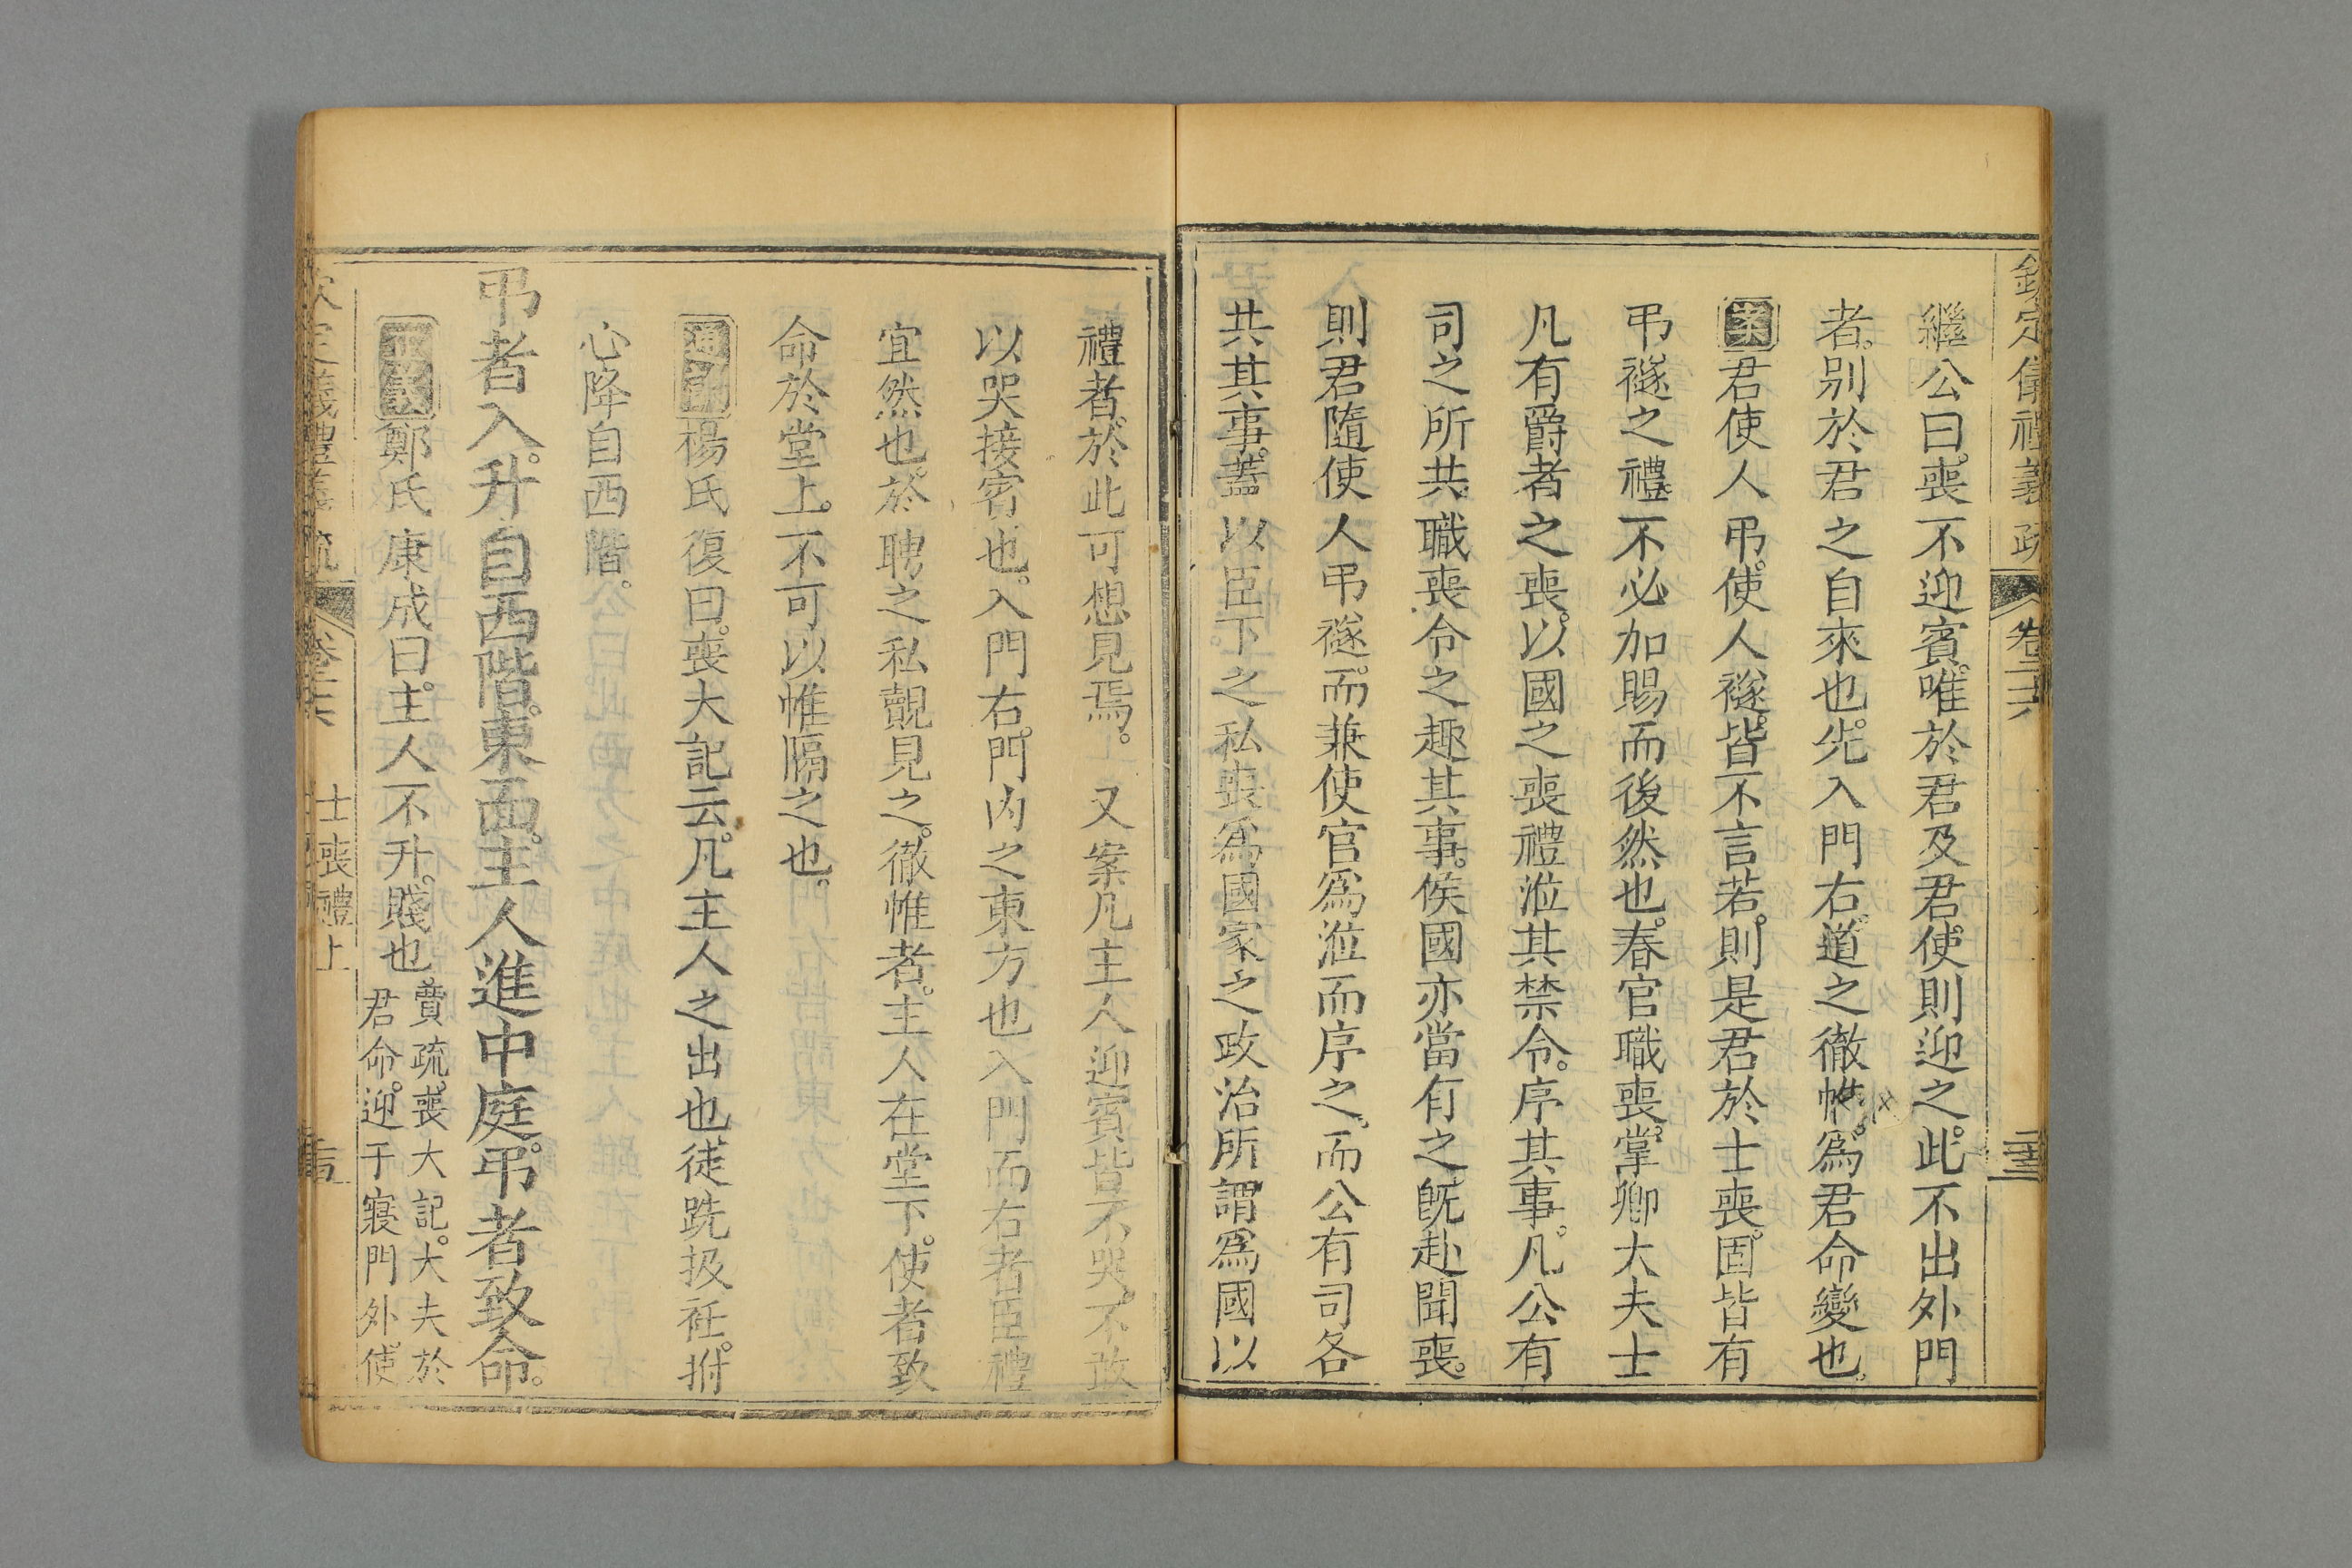 欽定儀禮義疏 卷二十六 二十三
繼公曰。喪不迎賓。唯於君及君使。則迎之。此不出外門
者。別於君之自來也。先入門右。道之徹帷。爲君命變也。
案君使人弔。使人襚。皆不言若。則是君於士喪。固皆有
弔襚之禮。不必加賜而後然也。春官職喪。掌卿大夫士
凡有爵者之喪。以國之喪禮涖其禁令。序其事。凡公有
司之所共。職喪令之趣其事。侯國亦當有之旣赴聞喪。
則君隨使人弔襚。而兼使官爲涖而序之。而公有司各
共其事。蓋以臣下之私喪爲國家之政治所謂爲國以
禮者。於此可想見焉。又案凡主人迎賓皆不哭。不敢
以哭接賓也。入門右。門內之東方也入門而右者臣禮
宜然也。於聘之私覿見之。徹帷者。主人在堂下。使者致
命於堂上。不可以帷隔之也。
通論楊氏復曰。喪大記云。凡主人之出也徒跣扱衽。拊
心降自西階。
弔者入。升自西階。東面。主人進中庭。弔者致命。
正義鄭氏康成曰。主人不升。賤也。
賈疏。喪大記。大夫於
君命。迎于寢門外。使
欽定儀禮義疏 卷二十六 士喪禮上